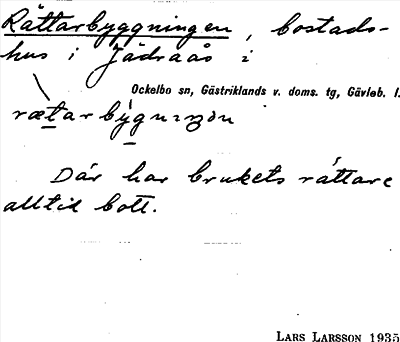 Rättarbyggningen, bostads-
hus i Jädraås i
Ockelbo sn, Gästriklands v. doms. tg, Gävleb. l.
Där har brukets rättare
alltid bott.
LARS LARSSON 1935